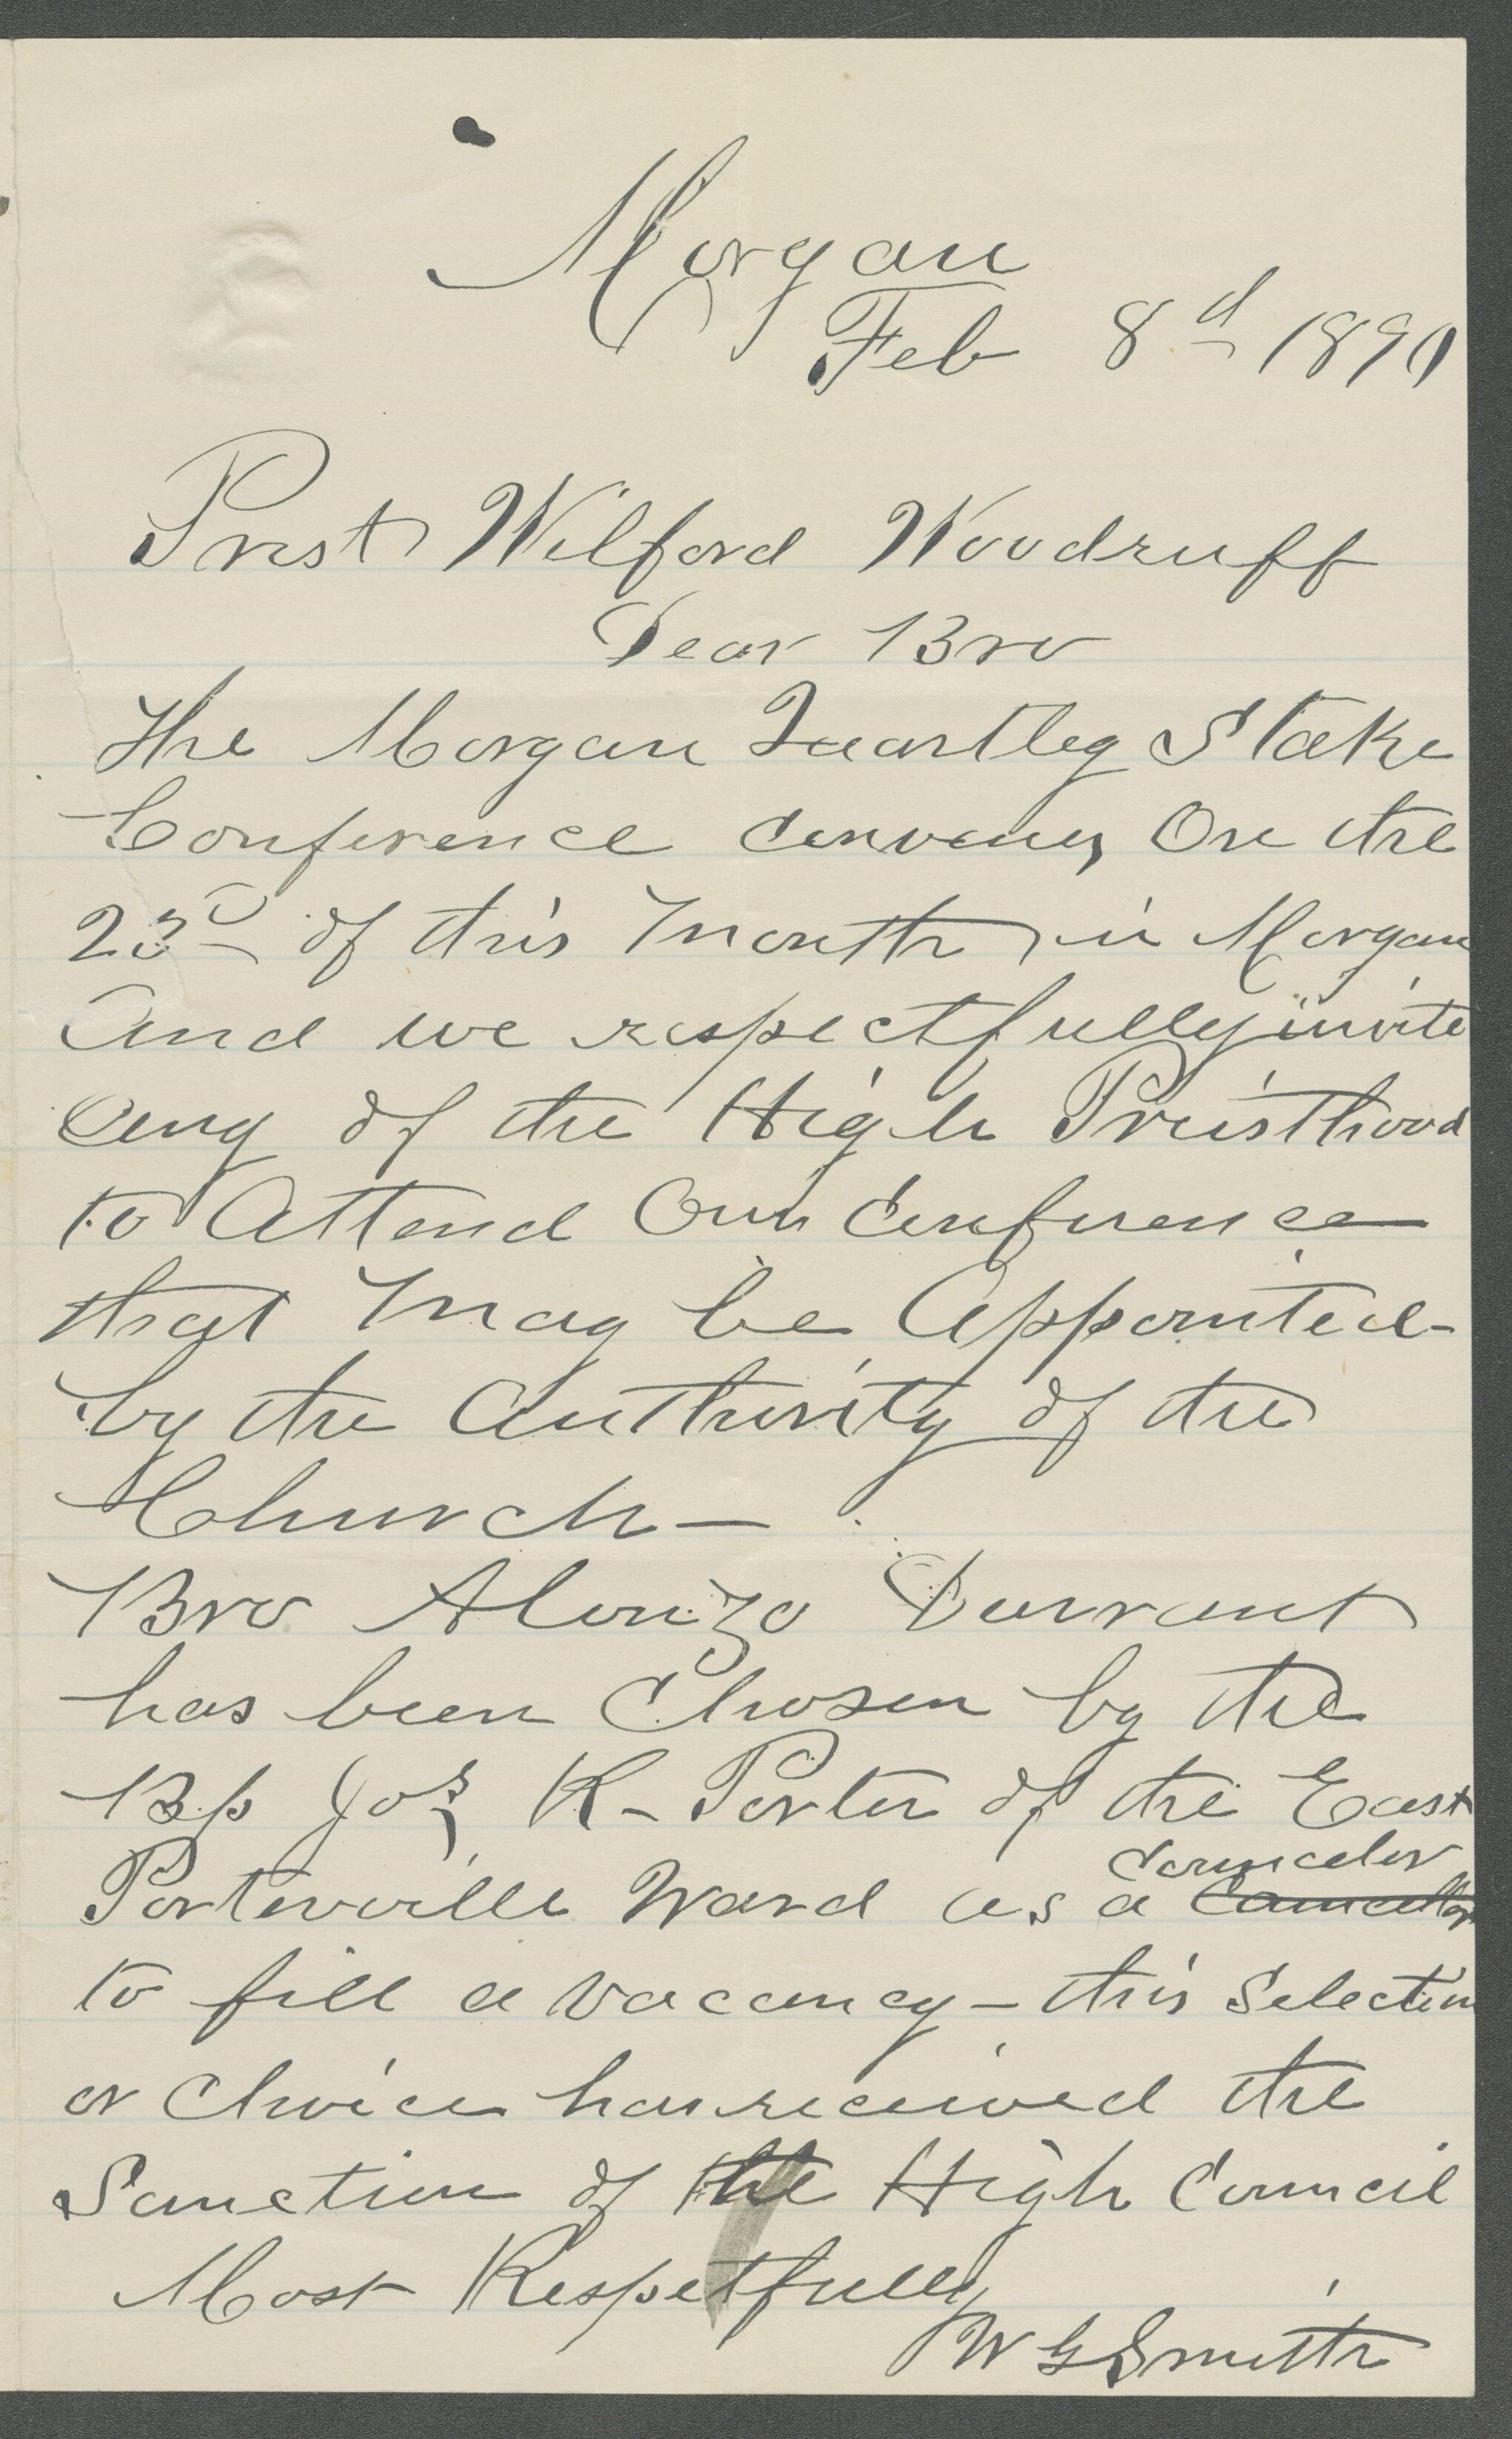 Morgan
Feb 8d 1890
Prest Wilford Woodruff
Dear Bro
The Morgan Quartley Stake
Conference convenes On the
23d of this Month in Morgan
And we respectfully invite
any of the High Priesthood
to Attend Our Conference
that may be Appointed
by the Authority of the
Church—
Bro Alonzo Durrant
has been Chosen by the
Bp Jos R- Porter of the East
Councelor
Porterville Ward as a Councellor
to fill a vacancy— this Selection
or Choice has received the
Sanction of the High Council
Most Respetfully
W G Smith